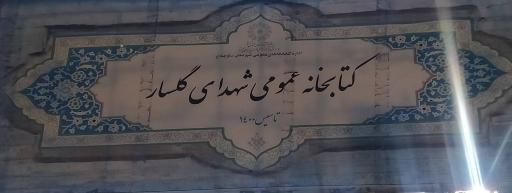 کتابخانه عمومی شهدای گلسار
تاسیس ۱۴۰۰